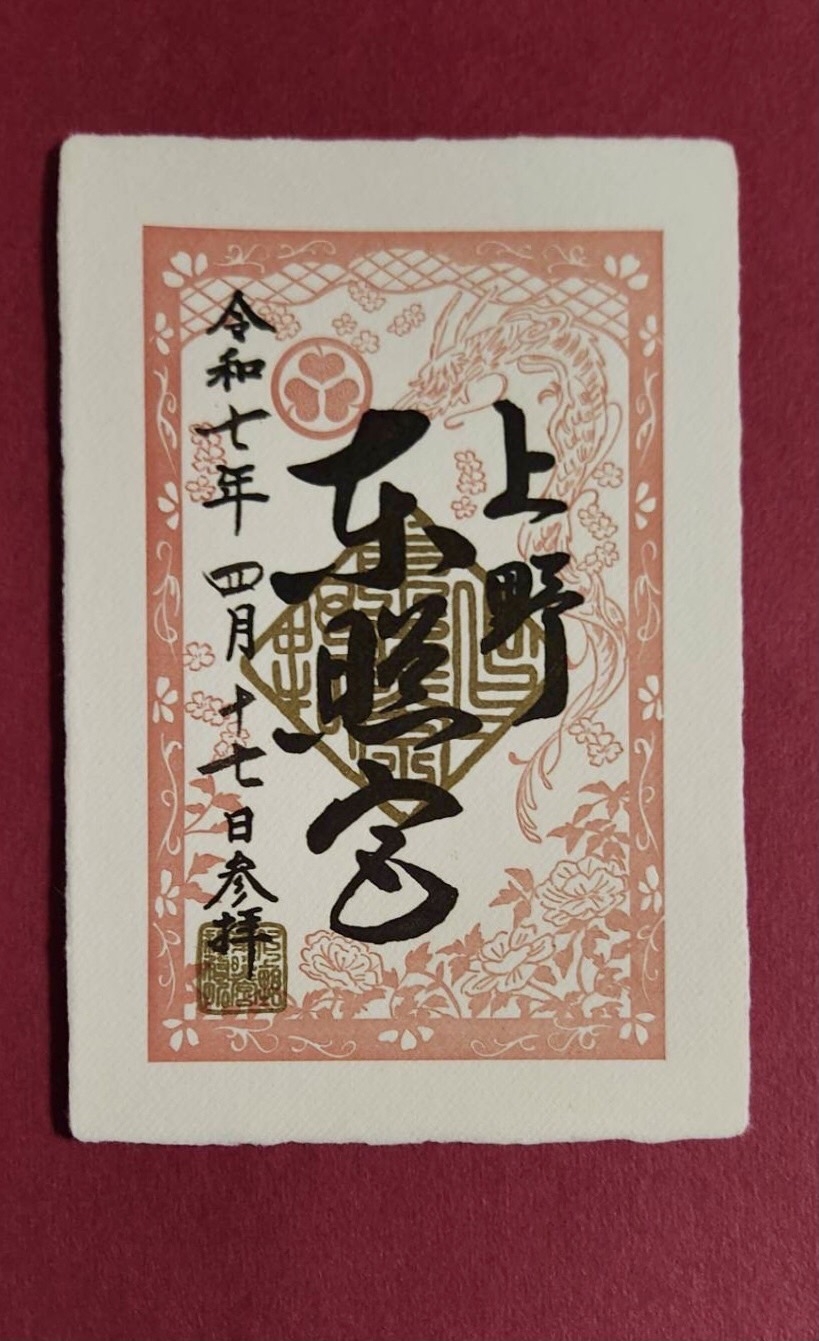 上野
東照宮
令和七年 四月 十七日参拝